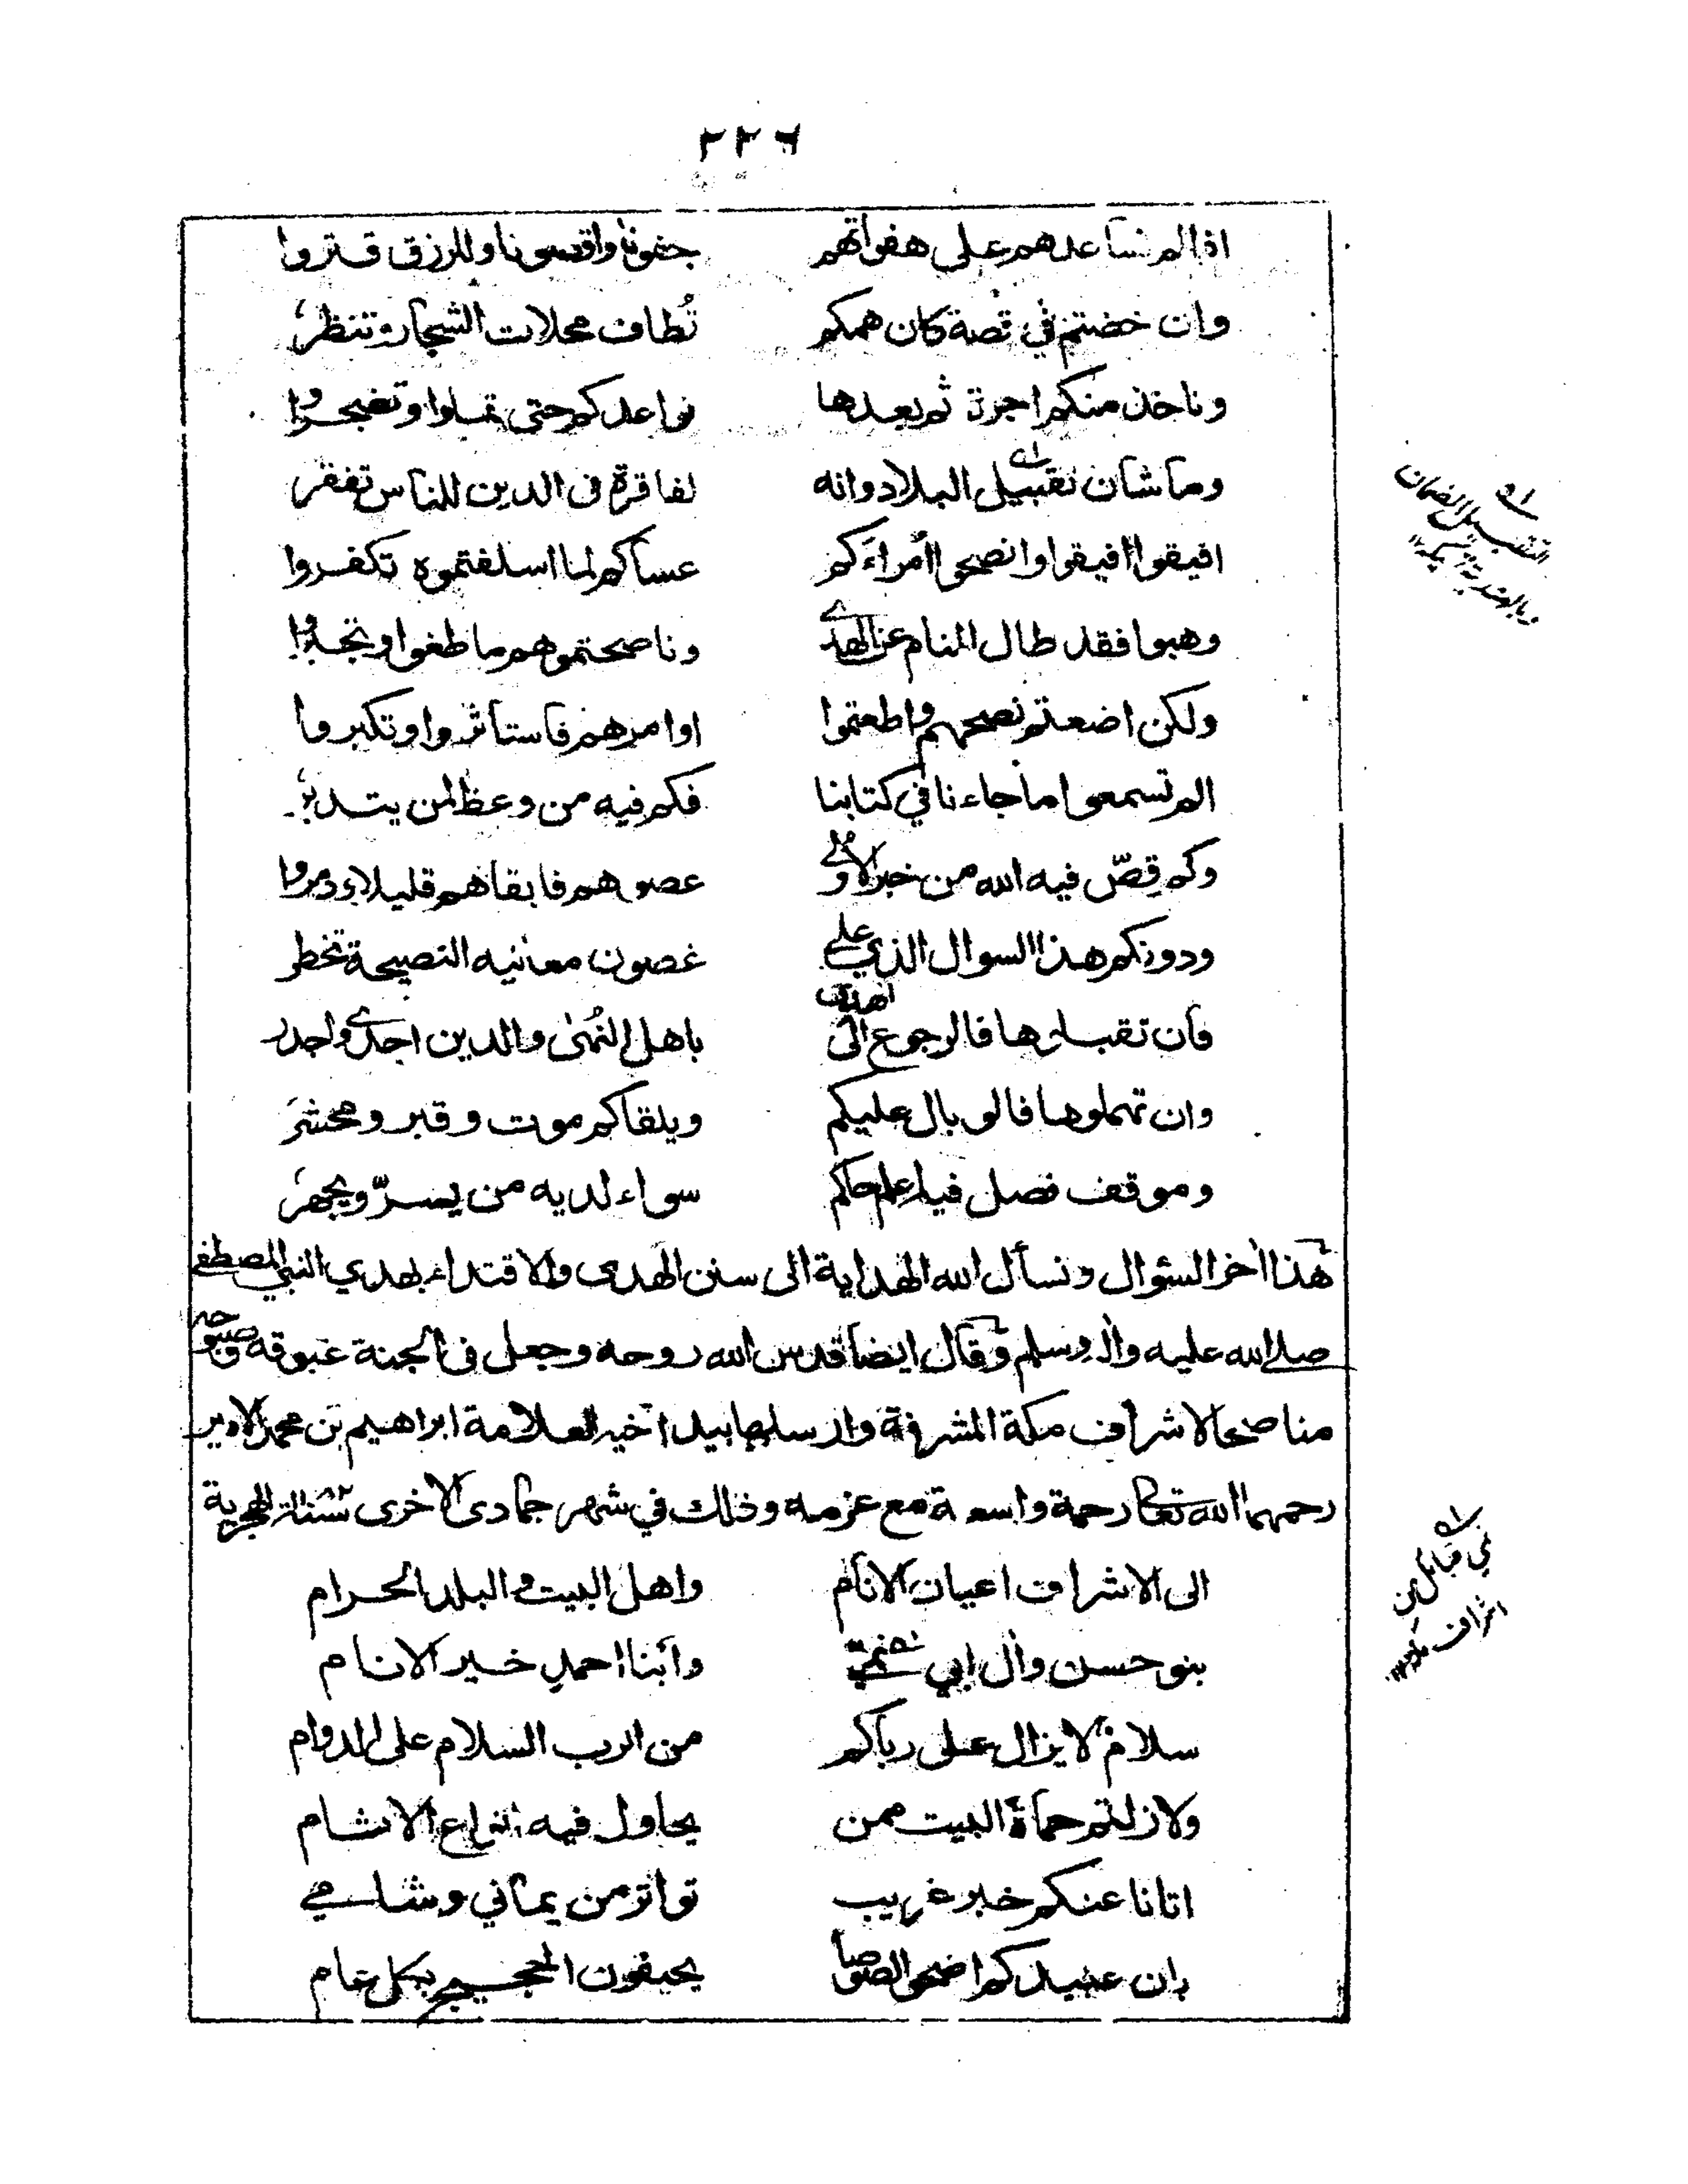 ٢٢٦
اذا لم نساعدهم على هفواتهم جفونا واقصونا وللرزق قتروا
وان خضتم في قصة كان همكم تُطاف محلات الشجار وتنظر
وناخذ منكم اجرة ثم بعدها نواعدكم حتى تملوا وتضجروا
وما شان تقبيل البلاد وانه لفاقرة فى الدين للناس تفقر
افيقوا افيقوا وانصحوا أمراءكم عساكم لما اسلفتموه تكفروا
وهبوا فقد طال المنام عن الهدى وناصحتموهم ما طغوا وتجبروا
ولكن اضعتم نصحهم واطعتموا اوامرهم فاستأثروا وتكبروا
الم تسمعوا ما جاءنا في كتابنا فكم فيه من وعظ لمن يتدبر
وكم قصّ فيه الله من خبر الأولى عصوهم فابقاهم قليلا ودمروا
ودونكم هذا السوال الذي على غصون معانيه النصيحة تخطر
فان تقبلوها فالرجوع الى الهدى باهل النُهىٰ والدين اجدى واجدر
وان تهملوها فالوبال عليكم ويلقاكم موت وقبر ومحشر
وموقف فصل فيه اعلم حاكم سواء لديه من يسرّ ويجهر
هذا اخر السئوال ونسأل الله الهداية الى سنن الهدى والاقتداء بهدي النبي المصطفى
صلى الله عليه وآله وسلم وقال ايضا قدس الله روحه وجعل فى الجنة غبوقه وصبوحه
مناصحا لاشراف مكة المشرفة وارسلها بيد اخيه العلامة ابراهيم بن محمد الامير
رحمهما الله تعالى رحمة واسعة مع عزمه وذلك في شهر جمادى الاخرى سنة الهجرية
الى الاشراف اعيان الانام واهل البيت والبلد الحرام
بنو حسن وآل ابي نمي وأبنا احمدٍ خير الانام
سلام لا يزال على رباكم من الرب السلام على الدوام
ولا زلتم حماة البيت ممن يحاول فيه انواع الاثام
اتانا عنكم خبر غريب تواتر من يماني وشامي
بان عبيدكم اضحوا لصوصا يحيفون الحجيج بكل عام
التقبيل الضمان
نمي قبائل من
اشراف مكة